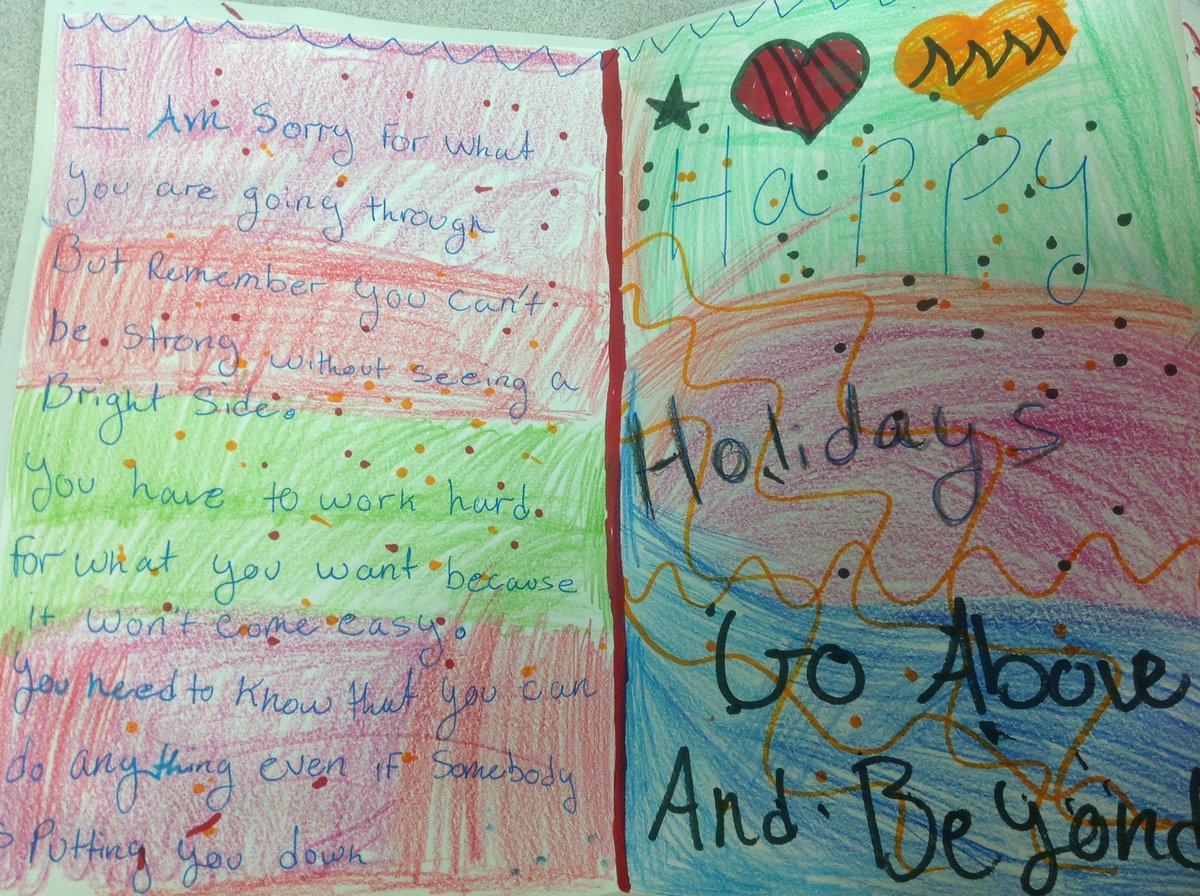 I Am Sorry For what
you are going through
But Remember you can't
be strong without seeing a
Bright Side.
you have to work hard
for what you want because
it won't come easy.
you need to know that you can
do anything even if somebody
s Putting you down
Happy
Holidays
Go Above
And Beyond